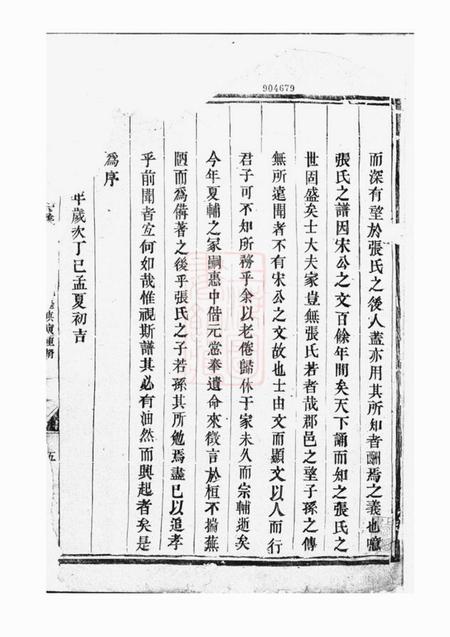 904679
而深有望於張氏之後人蓋亦用其所知者酬焉之義也噫
張氏之譜因宋公之文百餘年間矣天下誦而知之張氏之
世固盛矣士大夫家豈無張氏若者哉郡邑之望子孫之傳
無所遠聞者不有宋公之文故也士由文而顯文以人而行
君子可不知所務乎余以老倦歸休于家未久而宗輔逝矣
今年夏輔之冢嗣惠中偕元常奉遺命來徵言於桓不揣蕪
陋而為僃著之後乎張氏之子若孫其所勉焉盡已以追孝
乎前聞者宜何如哉惟視斯譜其必有油然而興起者矣是
為序
年歲次丁巳孟夏初吉
五